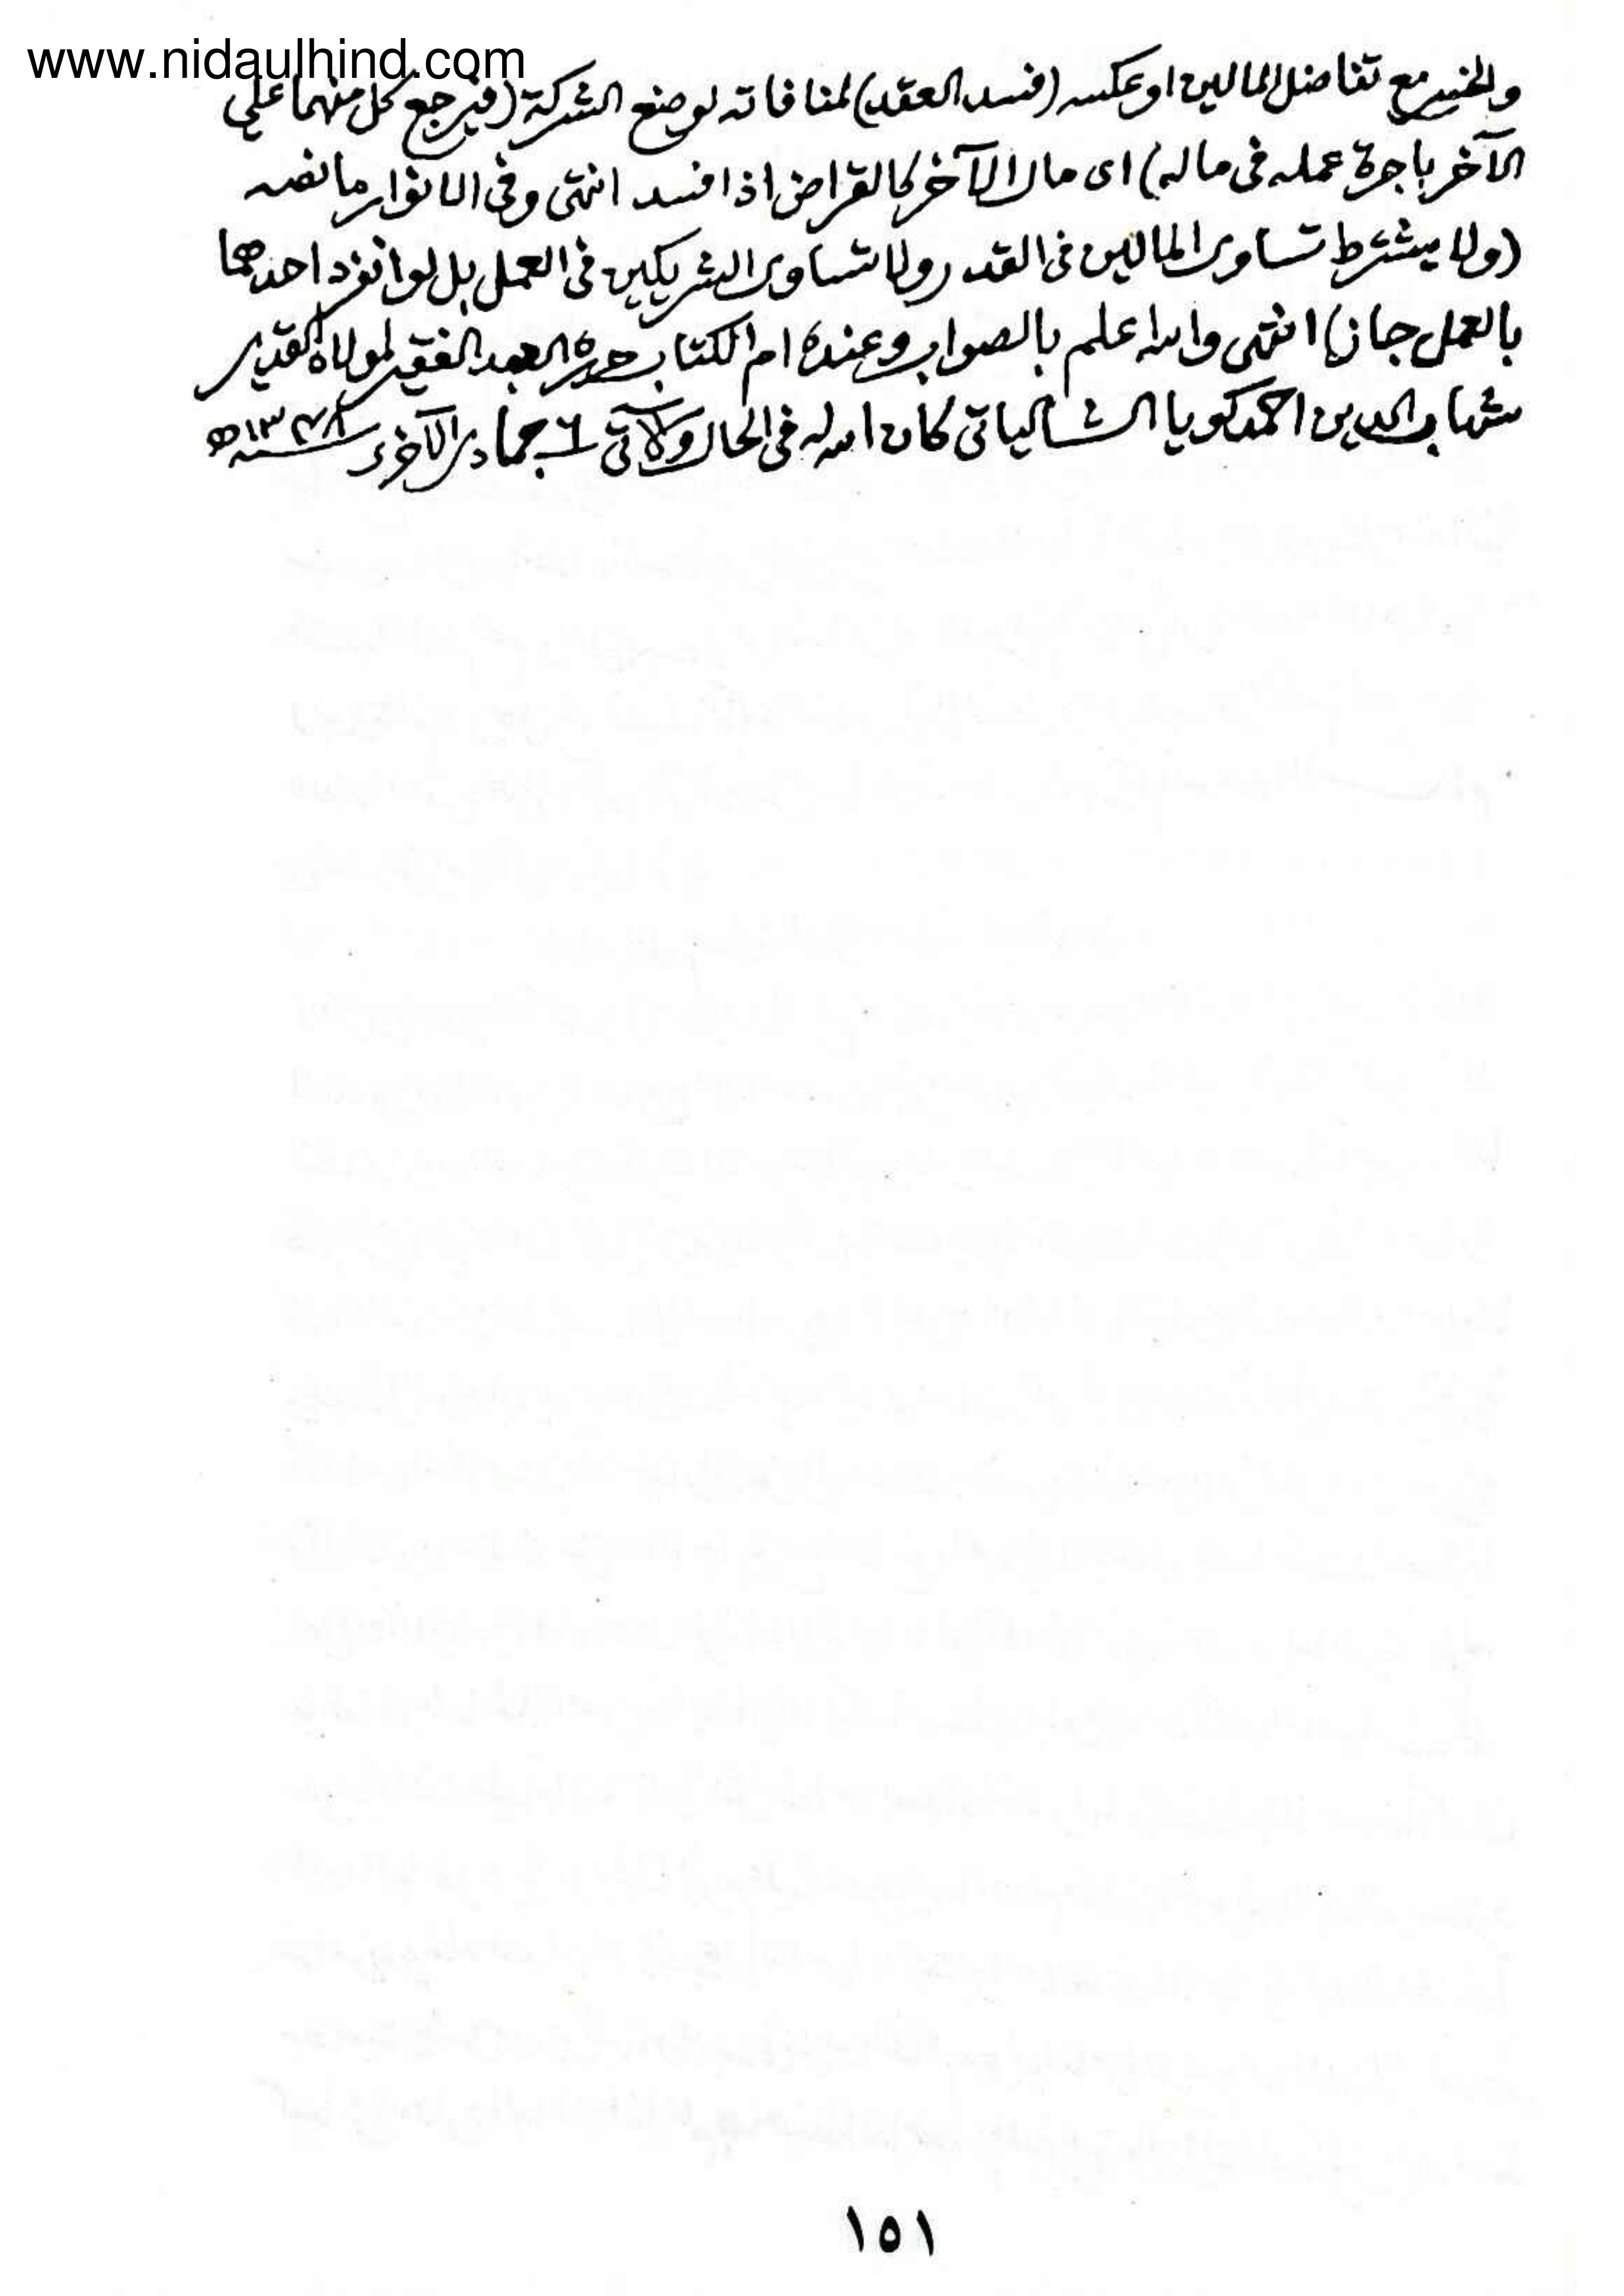 www.nidaulhind.com
والخسر مع تفاضل المالين او عكسه (فسد العقد) لمنافاته لوضع الشركة (فيرجع كل منهما على
الآخر باجرة عمله فى ماله) اى مال الآخر كالقراض اذا فسد انتهى وفى الانوار ما نصه
(ولا يشترط تساوى المالين فى القدر ولا تساوى الشريكين فى العمل بل لو انفرد احدهما
بالعمل جاز) انتهى والله اعلم بالصواب وعنده ام الكتاب حرره العبد الفقير لمولاه القدير
شهاب الدين احمد كويا الشالياتى كان الله له فى الحال والآتى ٦ جمادى الآخرى سنة ١٣٤٨ھ
١٥١